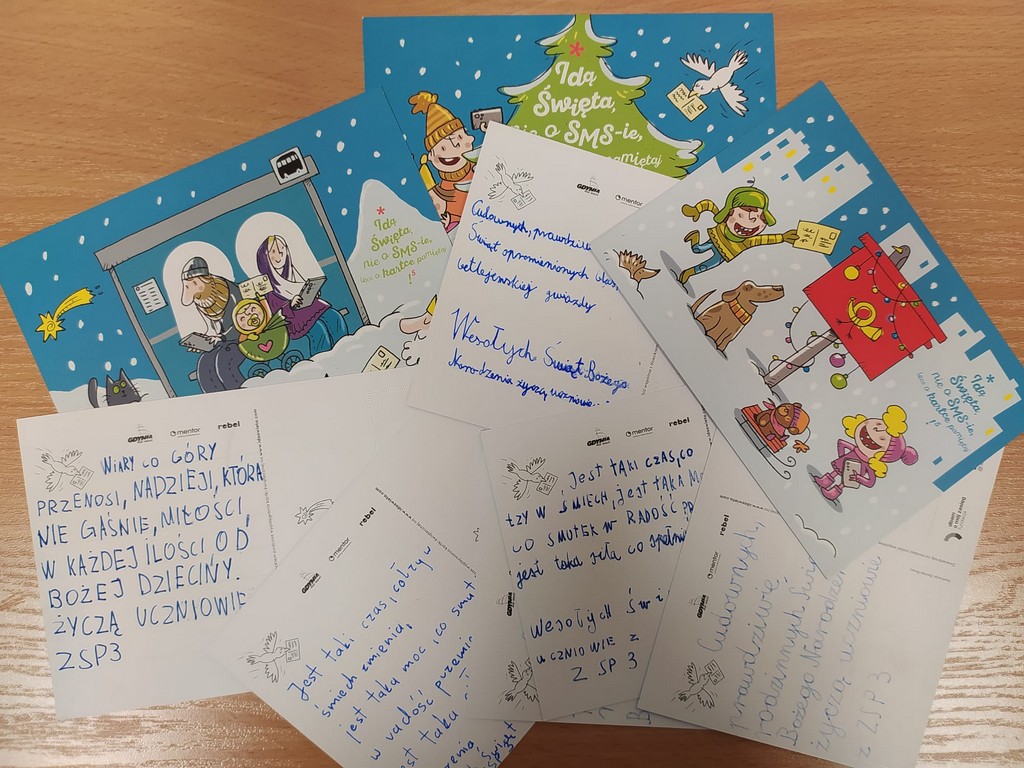 Idą
Święta,
nie o SMS-ie,
pamiętaj
Idą
Święta,
nie o SMS-ie,
lecz o kartce pamiętaj
!s
GDYNIA
mentor
Cudownych,
Świąt opromienionych
betlejemskiej gwiazdy
Wesołych Świąt Bożego
Narodzenia życzą uczniowie...
Idą
Święta,
nie o SMS-ie,
lecz o kartce pamiętaj
!s
GDYNIA
mentor
rebel
WIARY CO GÓRY
PRZENOSI, NADZIEJI, KTÓRA
NIE GAŚNIE, MIŁOŚCI,
W KAŻDEJ ILOŚCI, OD
BOŻEJ DZIECINY.
ŻYCZĄ UCZNIOWIE
ZSP3
GDYNIA
mentor
rebel
Jest taki czas, co łzy w
śmiech zmienia,
jest taka moc, co smut
w radość przemie
est taka
GDYNIA
mentor
rebel
JEST TAKI CZAS, CO
ŁZY W ŚMIECH, JEST TAKA M
CO SMUTEK W RADOŚĆ
jest taka siła co
Wesołych Świ
UCZNIOWIE Z
Z SP 3
GDYNIA
mentor
rebel
Cudownych,
prawdziwie
rodzinnych Świą
Bożego Narodzen
życzą uczniowie
z ZSP3